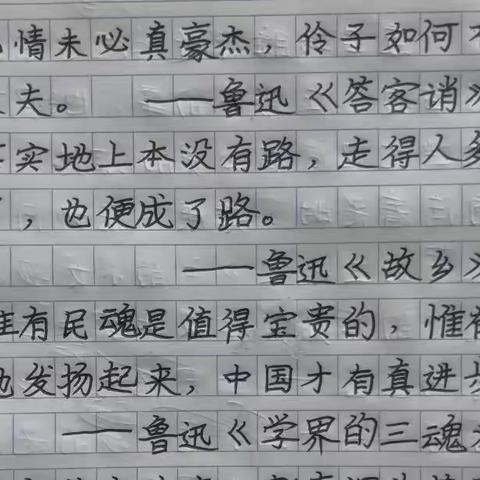 情未必真豪杰，伶子如何不
夫。 ——鲁迅《答客诮》
实地上本没有路，走得人多
，也便成了路。
——鲁迅《故乡》
惟有民魂是值得宝贵的，惟有
他发扬起来，中国才有真进步
——鲁迅《学界的三魂》